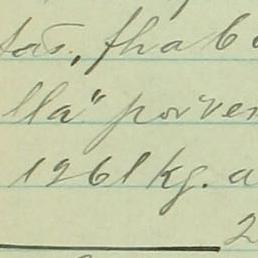 tas., fha b
lla" por ven
1261 kg. a
2